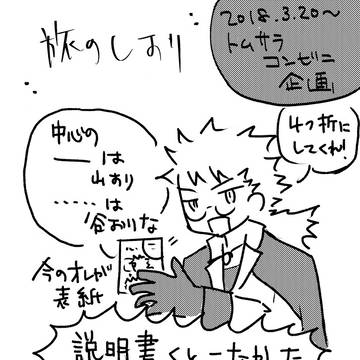 旅のしおり
2018.3.20〜
トムサラ
コンビニ
企画
4つ折に
してくれ!
中心の
――は
山おり
……は
谷おりな
今のオレが
表紙
説明書くとーなかった